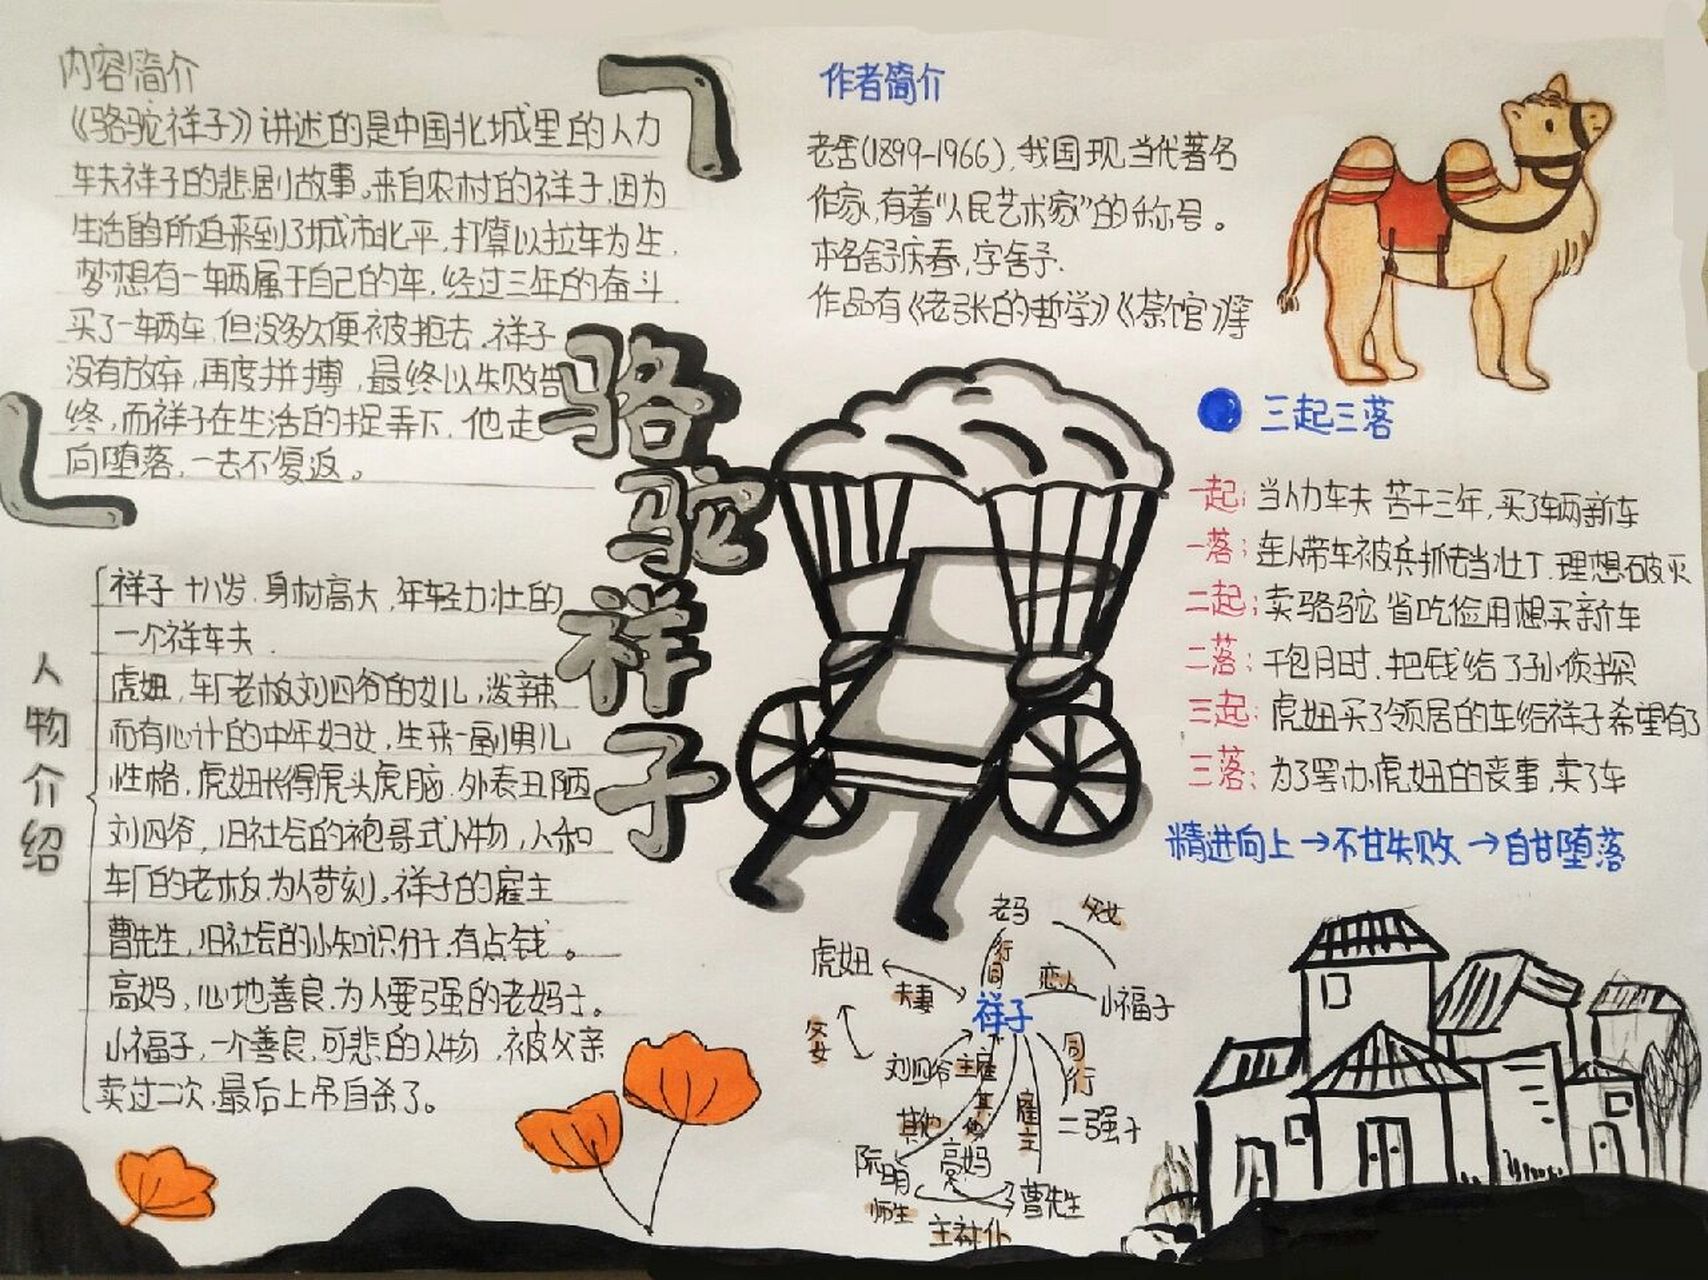 内容简介
《骆驼祥子》讲述的是中国北城里的人力
车夫祥子的悲剧故事。来自农村的祥子,因为
生活的所迫来到了城市北平,打算以拉车为生,
梦想有一辆属于自己的车,经过三年的奋斗,
买了一辆车,但没多久便被抢去,祥子
没有放弃,再度拼搏,最终以失败告
终,而祥子在生活的捉弄下,他走
向堕落,一去不复返。
骆驼祥子
人物介绍
祥子 十八岁,身材高大,年轻力壮的
一个祥车夫.
虎妞,车厂老板刘四爷的女儿,泼辣
而有心计的中年妇女,生来一副男儿
性格,虎妞长得虎头虎脑,外表丑陋
刘四爷,旧社会的袍哥式人物,人和
车厂的老板,为人苛刻,祥子的雇主
曹先生,旧社会的小知识分子,有点钱。
高妈,心地善良,为人要强的老妈子。
小福子,一个善良,可悲的人物,被父亲
卖过二次,最后上吊自杀了。
作者简介
老舍(1899-1966),我国现当代著名
作家,有着“人民艺术家”的称号。
本名舒庆春,字舍予.
作品有《老张的哲学》《茶馆》等
三起三落
一起:当人力车夫 苦干三年,买了车两新车
一落:连人带车被兵抓去当壮丁,理想破灭
二起:卖骆驼 省吃俭用想买新车
二落:干包月时,把钱给了孙侦探
三起:虎妞买了领居的车给祥子希望有了
三落:为了罢办虎妞的丧事,卖了车
精进向上→不甘失败→自甘堕落
老马
父女
行同
虎妞
夫妻
恋人
祥子
小福子
父女
刘四爷
主雇
同行
其他
其他
雇主
二强子
阮明
高妈
师生
曹先生
主社仆